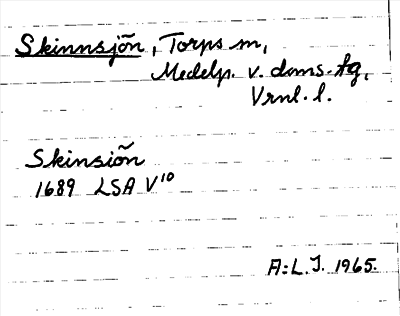 Skinnsjõn, Torps sn,
Medelp. v. doms. tg,
Vrnl. l.
Skinsiõn
1689 LSA V¹⁰
A:L.J. 1965.